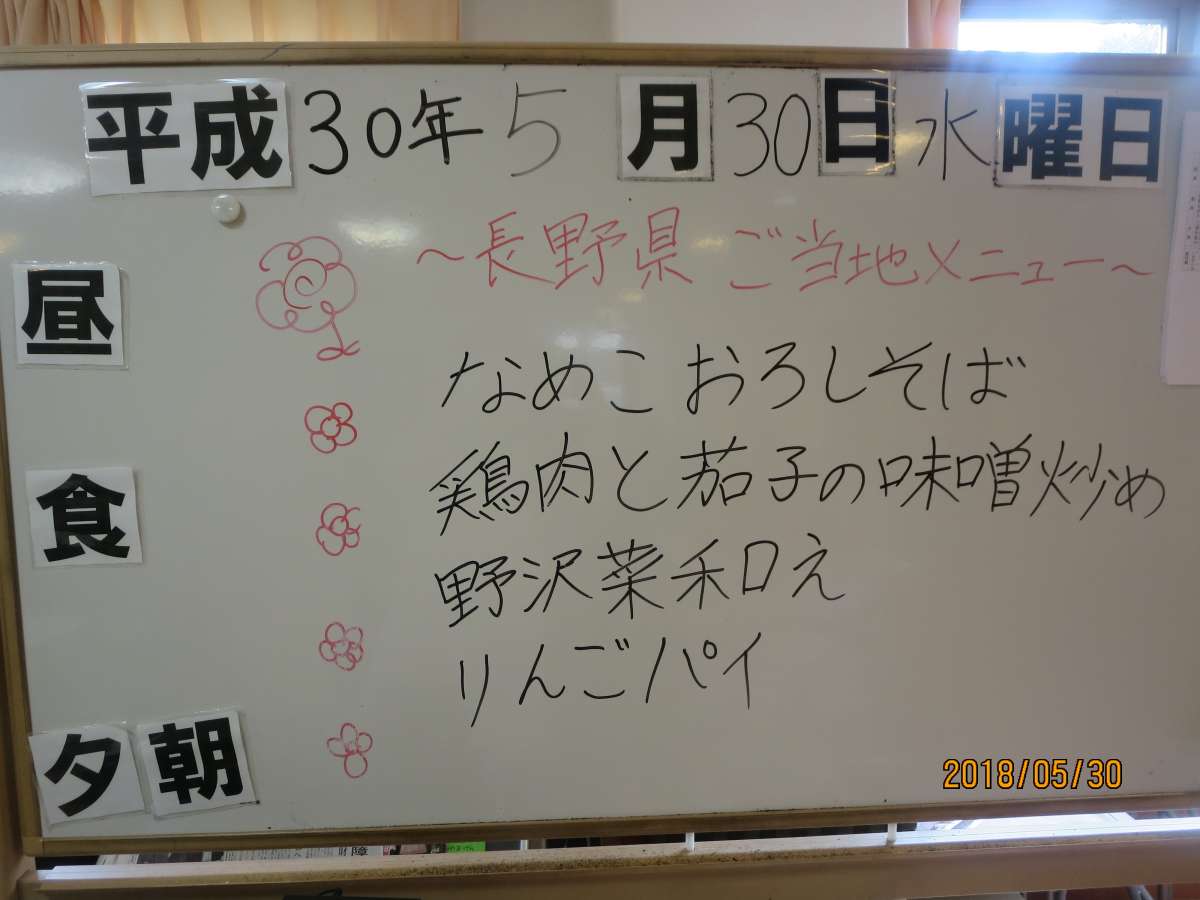 平成30年5月30日水曜日
~長野県 ご当地メニュー~
昼食
なめこ おろしそば
鶏肉と茄子の味噌炒め
野沢菜和え
りんごパイ
夕朝
2018/05/30